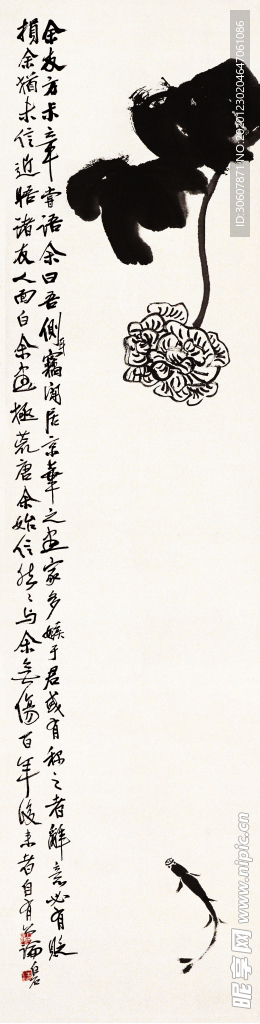 余友方叔章尝语余曰吾侧耳窃闻居京华之画家多嫉于君或有称之者辞意必有贬
损余犹未信近晤诸友人面白余画极荒唐余始信然然与余无伤百年后来者自有公论白石
ID:30607871 NO:20201230204647061086
昵享网 www.nipic.cn